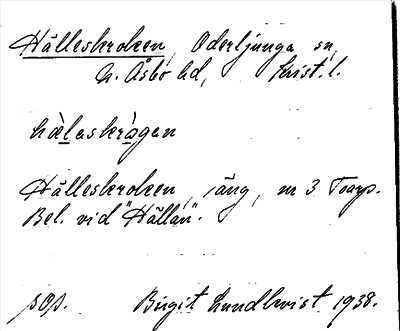 Hälleskroken, Oderljunga sn,
N. Åsbo hd, Krist. l.
hàl̲askrò̲gan
Hälleskroken, äng, m 3 Torp.
Bel. vid "Hällan".
pop. Birgit Lundkvist 1938.